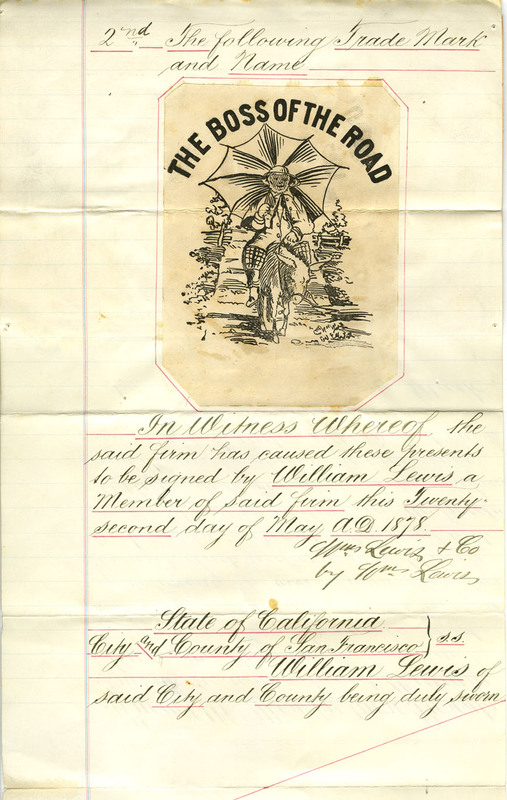 2nd The following Trade Mark
and Name
THE BOSS OF THE ROAD
In Witness Whereof the
said firm has caused these presents
to be signed by William Lewis a
Member of said firm this Twenty-
second day of May A.D. 1878.
Wm Lewis & Co
by Wm Lewis
State of California
City and County of San Francisco } s.s.
William Lewis of
said City and County being duly sworn